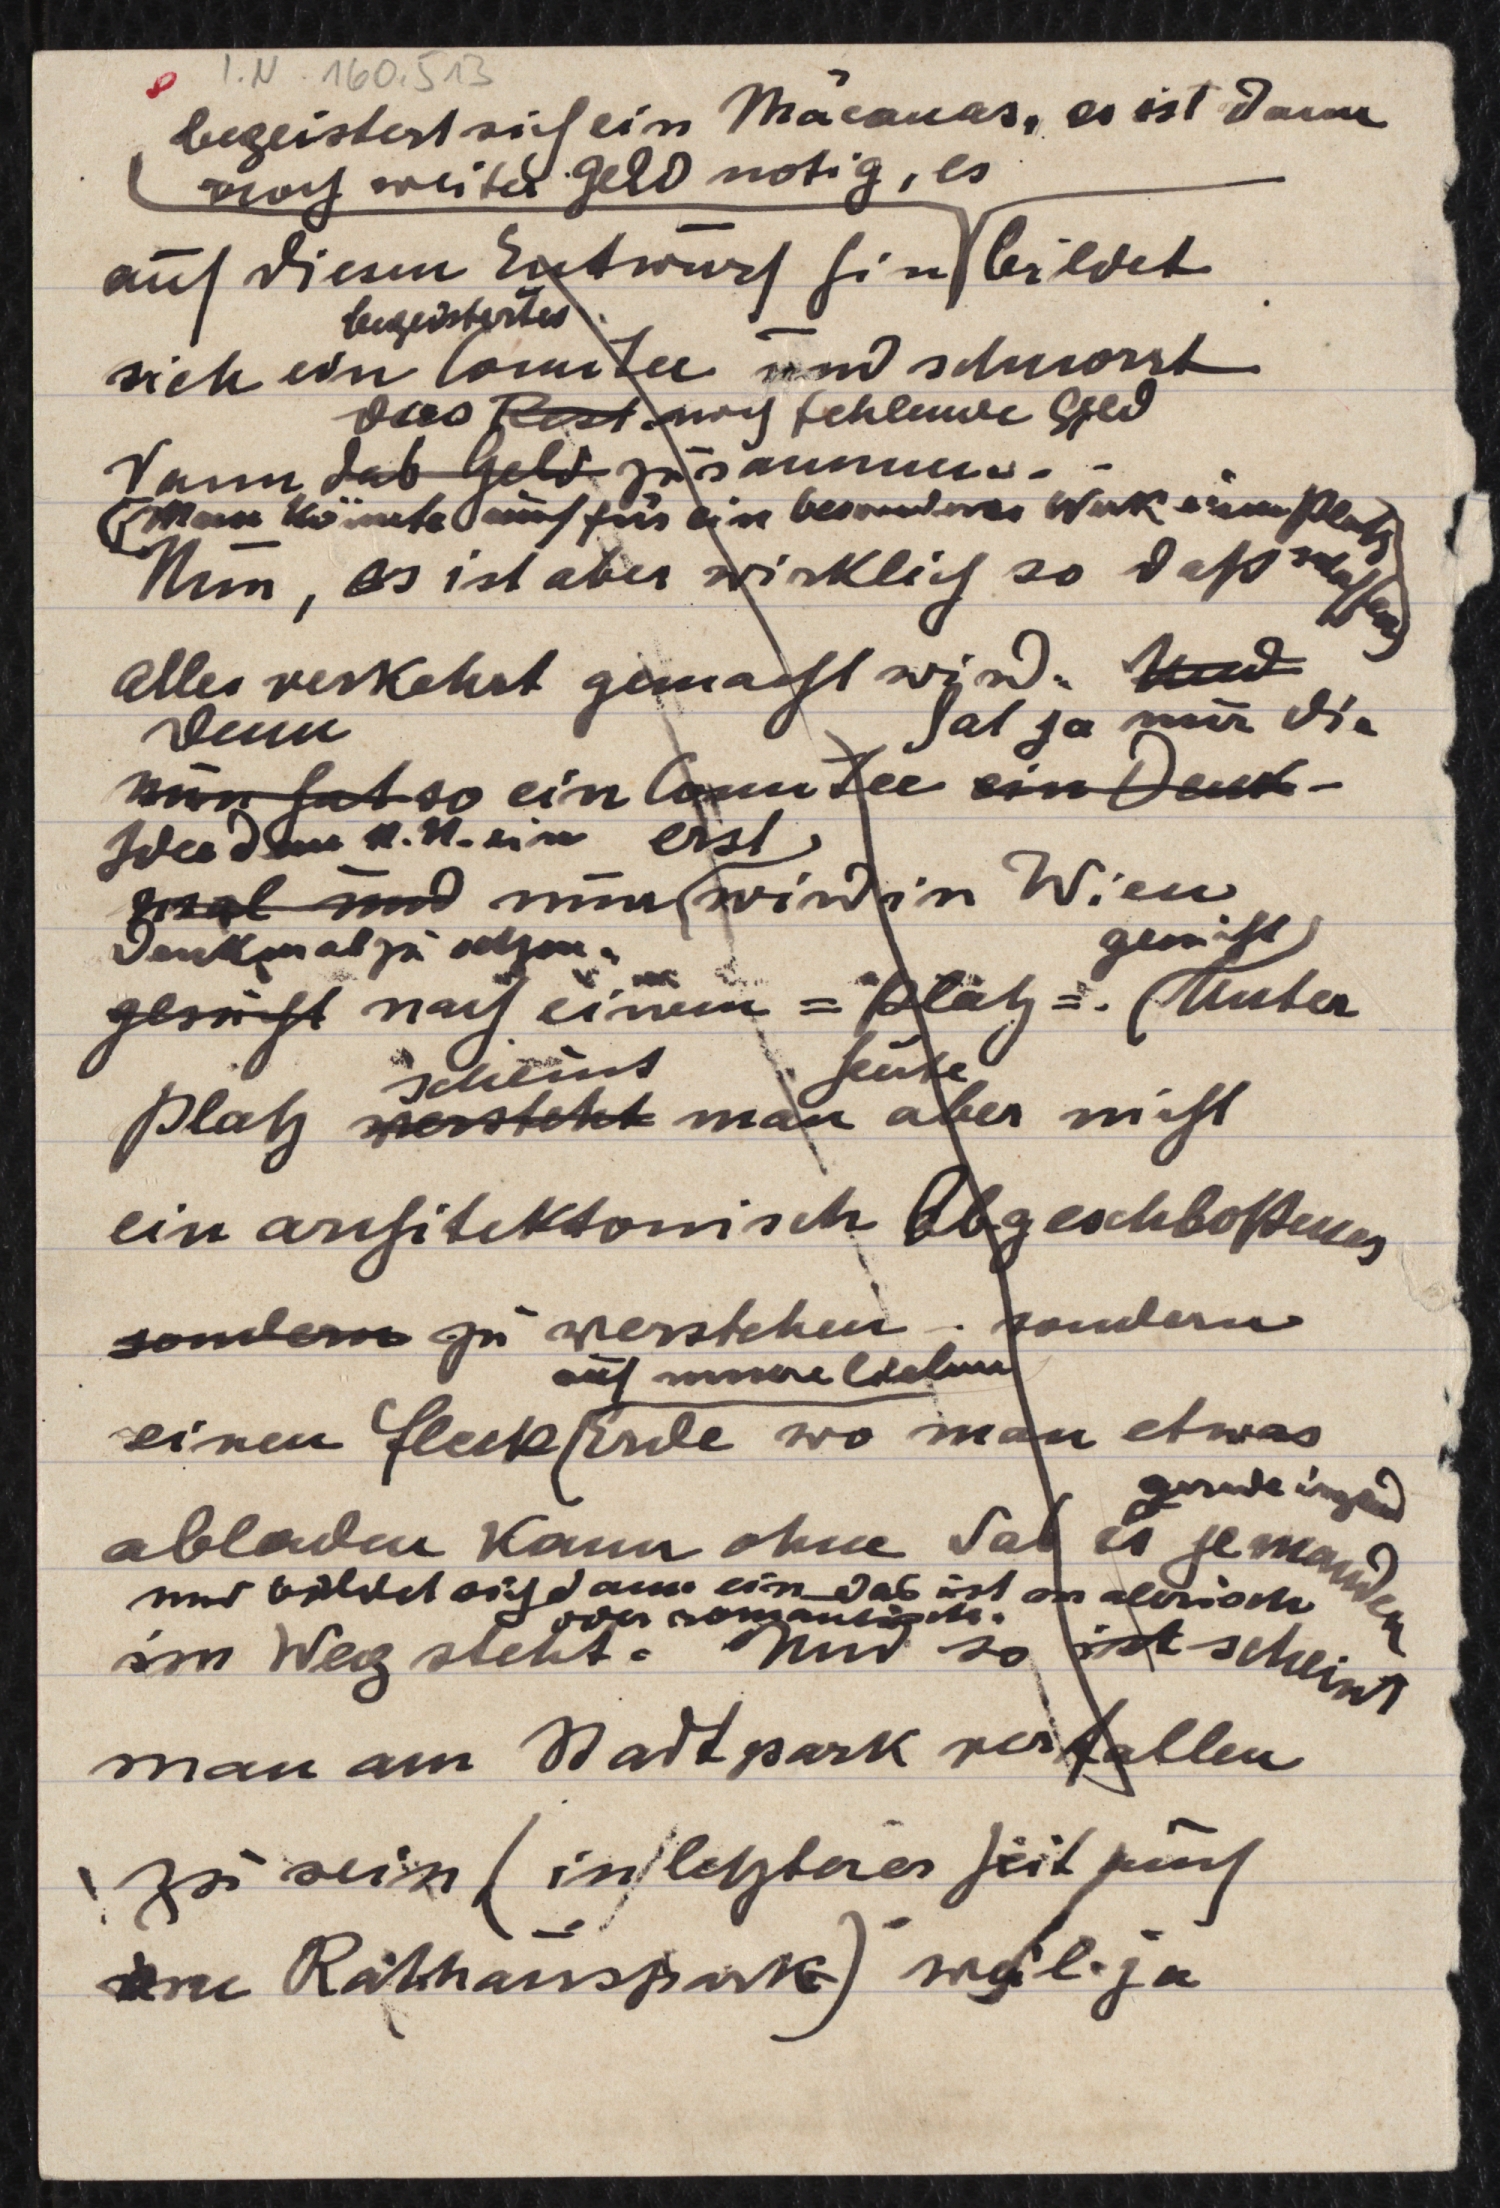 I.N. 160.513
begeistert sich ein Mäcenas, es ist dann
noch weiter Geld notig, es
auf diesen Entwurf hin bildet
begeistertes
sich ein Comitee und schnorrt
das Rest noch fehlende Geld
dann das Geld zusammen..-
(Man könnte auch für ein besonderes Werk einen Platz
schaffen)
Nun, es ist aber wirklich so daß
alles verkehrt gemacht wird. Und
Denn hat ja nur die
nun hat so ein Comitee ein Denk-
Idee dem N.N. ein erst
mal und nun wird in Wien
Denkmal zu setzen.
gesucht
gesucht nach einem = Platz =. (Unter
scheint heute
Platz versteht man aber nicht
ein architektonisch Abgeschloßenes
sondern zu verstehen - sondern
auf unsere lieben
einen fleck Erde wo man etwas
gerade irgend
abladen kann ohne daß es jemanden
und bildet sich dann ein das ist malerisch
oder romantisch.
im Weg steht. Und so ist scheint
man am Stadtpark verfallen
zu sein (in letzterer Zeit auch
am Rathauspark) weil ja